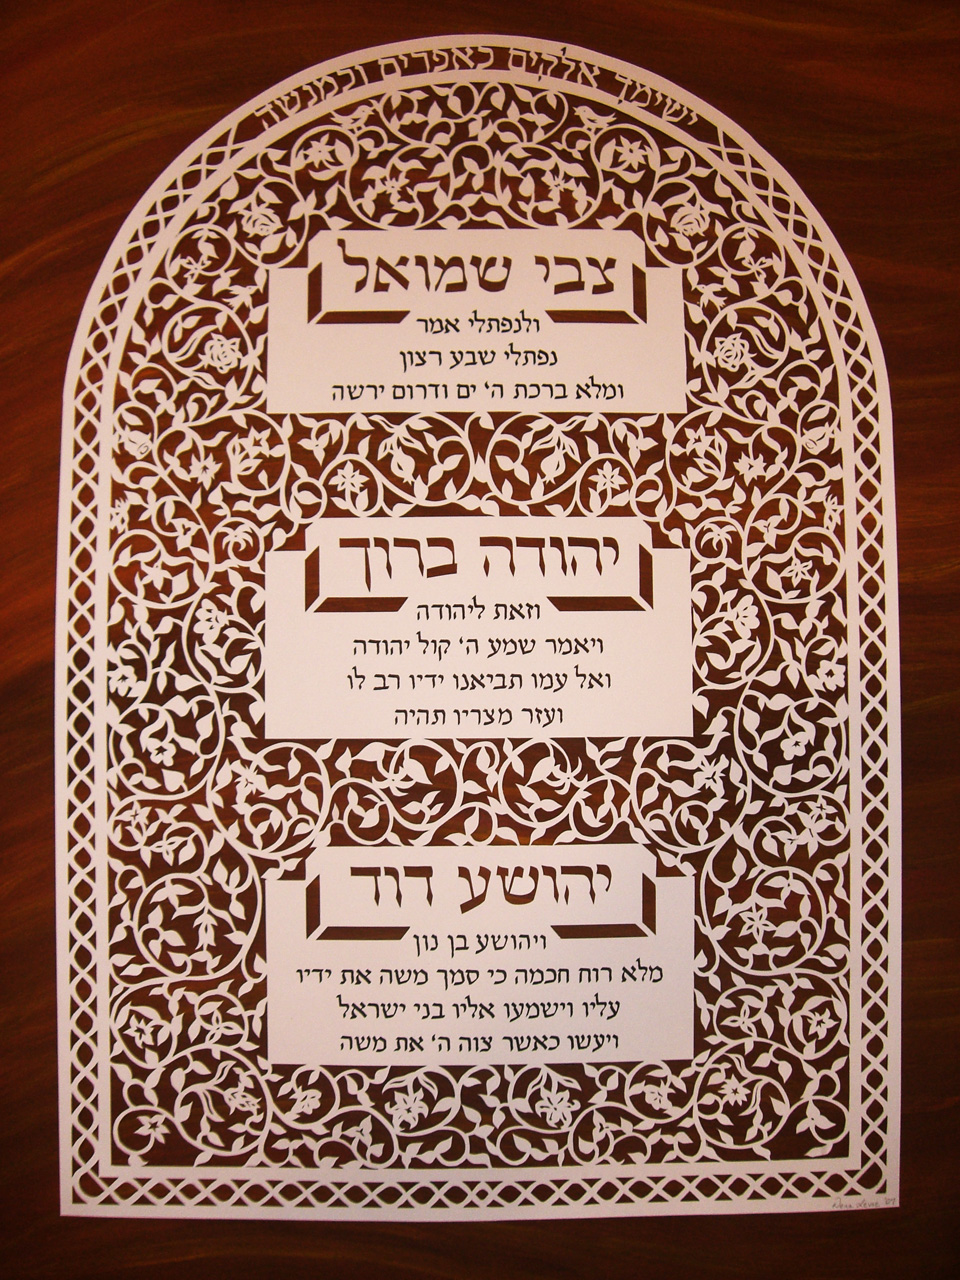 ישימך אלקים כאפרים וכמנשה
צבי שמואל
ולנפתלי אמר
נפתלי שבע רצון
ומלא ברכת ה' ים ודרום ירשה
יהודה ברוך
וזאת ליהודה
ויאמר שמע ה' קול יהודה
ואל עמו תביאנו ידיו רב לו
ועזר מצריו תהיה
יהושע דוד
ויהושע בן נון
מלא רוח חכמה כי סמך משה את ידיו
עליו וישמעו אליו בני ישראל
ויעשו כאשר צוה ה' את משה